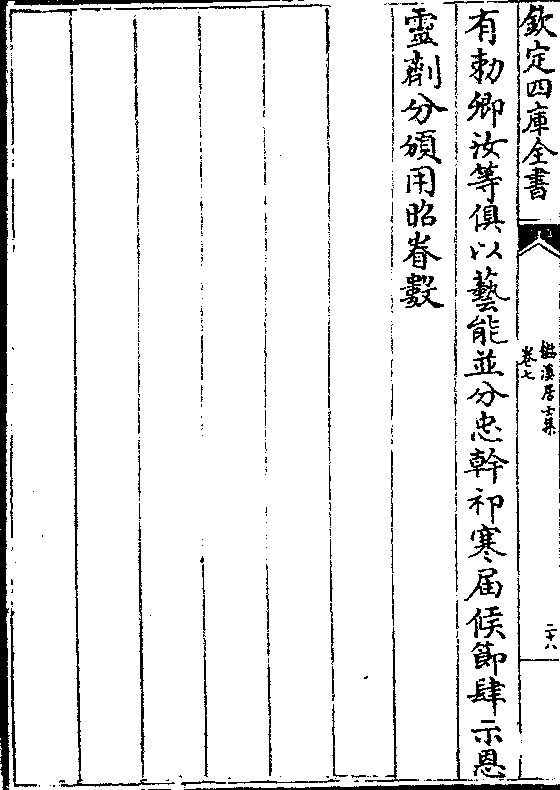 欽定四庫全書
䲡溪居士集
卷七
二十八
有勅卿汝等俱以藝能並分忠幹祁寒届候節肆示恩
靈劑分頒用昭眷數